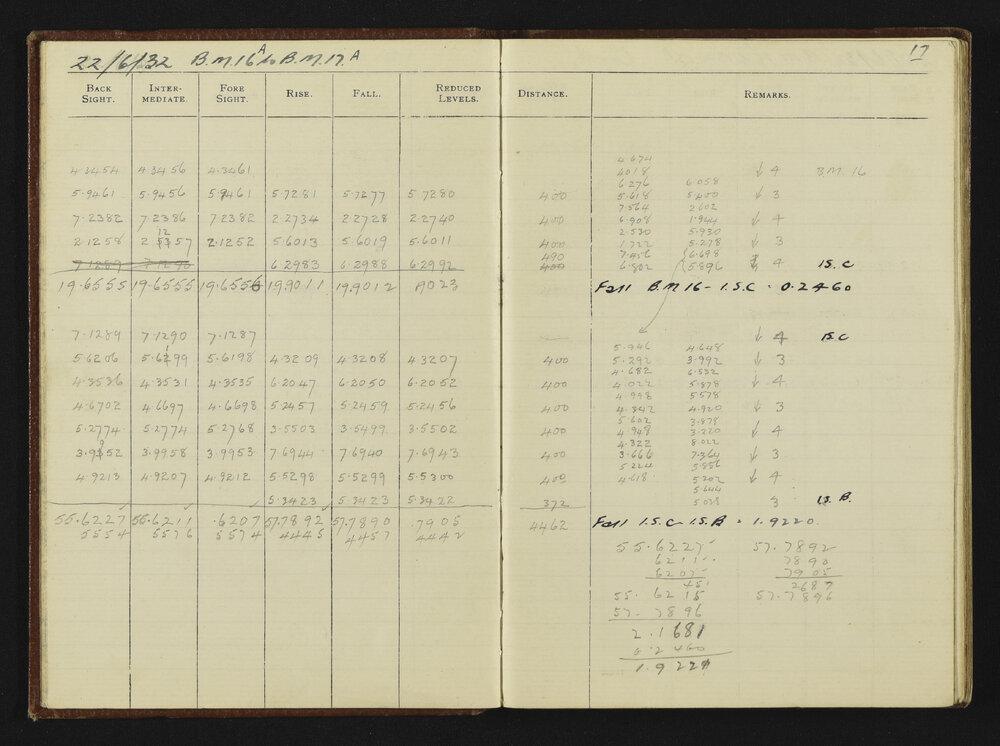 22/6/32 B.M.16A to B.M.17A 17
BACK SIGHT. INTER-MEDIATE. FORE SIGHT. RISE. FALL. REDUCED LEVELS. DISTANCE. REMARKS.
4.674
4.3454 4.3456 4.3461 4018 ↓ 4 B.M. 16
6.276 6.058
5.9461 5.9456 5.9461 5.7281 5.7277 5.7280 400 5.618 5.400 ↓ 3
7.564 2602
7.2382 7.2386 7.2382 2.2734 2.2728 2.2740 400 6.908 1.944 ↓ 4
2.530 5.930
2.1258 2.1257 2.1252 5.6013 5.6019 5.6011 400 1.722 5.278 ↓ 3
490 7.456 6.698
7.1289 7.1290 6.2983 6.2988 6.2992 400 6.802 5.896 ↓ 4 I.S.C
19.6555 19.6555 19.6556 19.9011 19.9012 .9023 Fall B.M 16 - I.S.C. 0.2460
7.1289 7.1290 7.1287 ↓ 4 I.S.C
5.946 4.648
5.6206 5.6199 5.6198 4.3209 4.3208 4.3207 400 5.292 3.992 ↓ 3
4.682 6.532
4.3536 4.3531 4.3535 6.2047 6.2050 6.2052 400 4.022 5.878 ↓ 4
4.998 5578
4.6702 4.6697 4.6698 5.2457 5.2459 5.2456 400 4.342 4.920 ↓ 3
5.602 3.878
5.2774 5.2774 5.2768 3.5503 3.5499 3.5502 400 4.948 3.220 ↓ 4
4.322 8.022
3.9952 3.9958 3.9953 7.6944 7.6940 7.6943 400 3.666 7.364 ↓ 3
5.224 5.856
4.9213 4.9207 4.9212 5.5298 5.5299 5.5300 400 4.618 5.202 ↓ 4
5.644
5.3423 5.3423 5.3422 372 5.028 3 I.S.B.
55.6227 55.6211 .6207 57.7892 57.7890 .7905 4462 Fall I.S.C - I.S.B = 1.9220.
5554 5576 5574 4445 4457 4442
55.6227 57.7892
6211 7890
6207 7905
451 2687
55.6215 57.7896
57.7896
2.1681
0.2460
1.9221